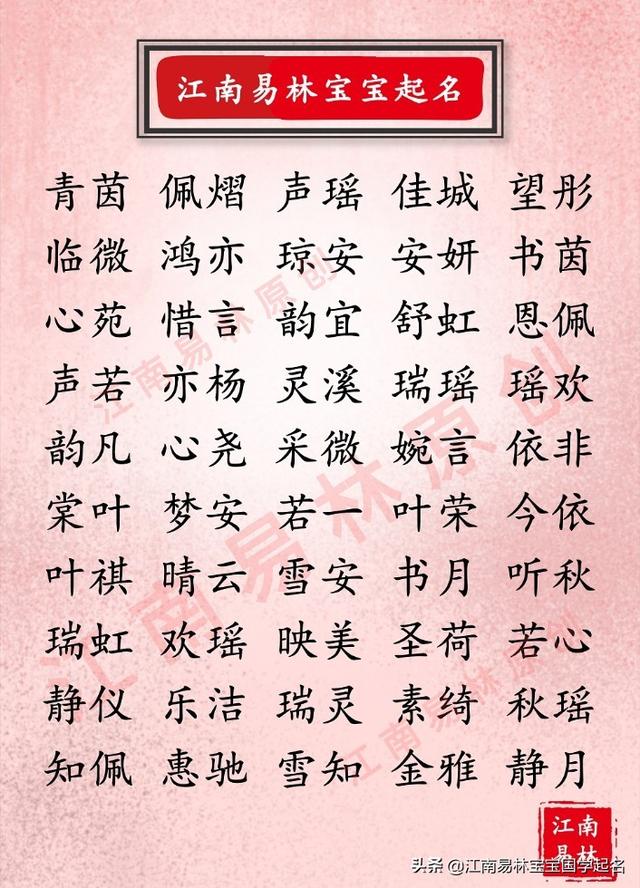 江南易林宝宝起名
青茵 佩熠 声瑶 佳城 望彤
临微 鸿亦 琼安 安妍 书茵
心苑 惜言 韵宜 舒虹 恩佩
声若 亦杨 灵溪 瑞瑶 瑶欢
韵凡 心尧 采微 婉言 依非
棠叶 梦安 若一 叶荣 今依
叶祺 晴云 雪安 书月 听秋
瑞虹 欢瑶 映美 圣荷 若心
静仪 乐洁 瑞灵 素绮 秋瑶
知佩 惠驰 雪知 金雅 静月
江南易林原创
江南易林原创
江南易林原创
江南
易林
头条 @江南易林宝宝国学起名